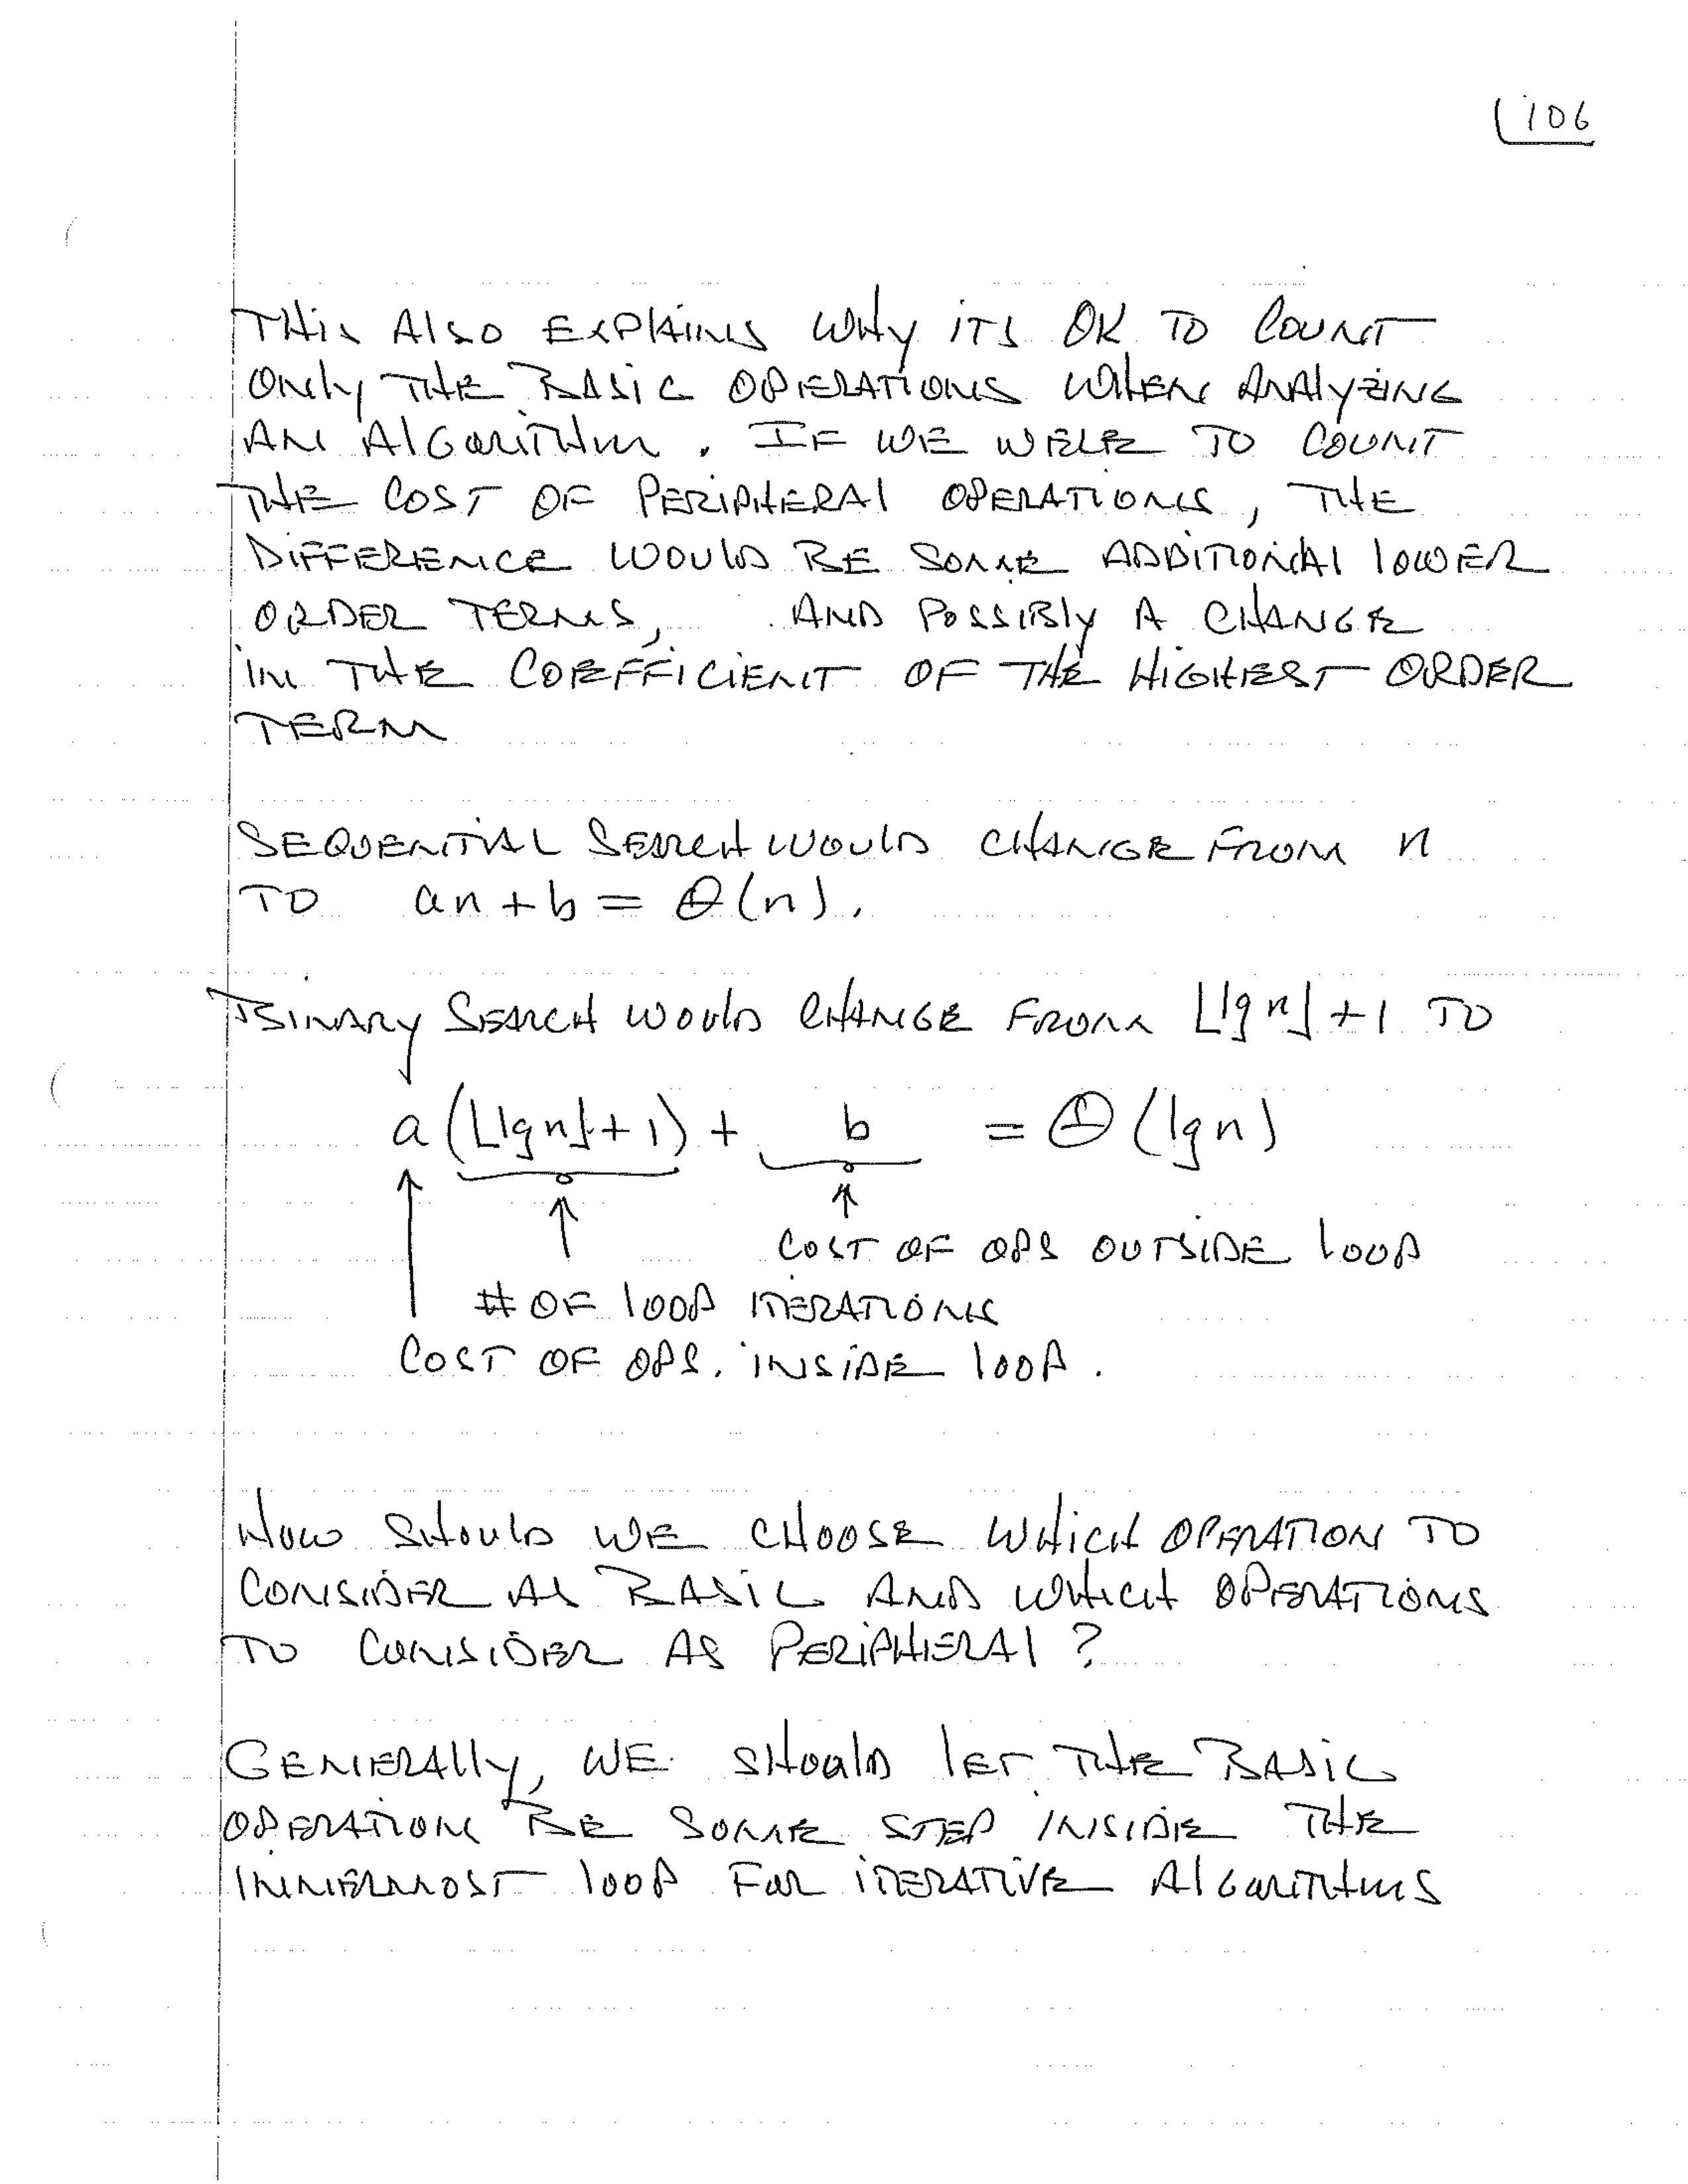 106
THIS ALSO EXPLAINS WHY ITS OK TO COUNT
ONLY THE BASIC OPERATIONS WHEN ANALYZING
AN ALGORITHM. IF WE WERE TO COUNT
THE COST OF PERIPHERAL OPERATIONS, THE
DIFFERENCE WOULD BE SOME ADDITIONAL LOWER
ORDER TERMS, AND POSSIBLY A CHANGE
IN THE COEFFICIENT OF THE HIGHEST ORDER
TERM
SEQUENTIAL SEARCH WOULD CHANGE FROM n
TO an + b = Θ(n).
BINARY SEARCH WOULD CHANGE FROM ⌊lg n⌋ + 1 TO
a (⌊lg n⌋ + 1) + b = Θ (lg n)
COST OF OPS OUTSIDE LOOP
# OF LOOP ITERATIONS
COST OF OPS. INSIDE LOOP.
HOW SHOULD WE CHOOSE WHICH OPERATION TO
CONSIDER AS BASIC AND WHICH OPERATIONS
TO CONSIDER AS PERIPHERAL?
GENERALLY, WE SHOULD LET THE BASIC
OPERATION BE SOME STEP INSIDE THE
INNERMOST LOOP FOR ITERATIVE ALGORITHMS